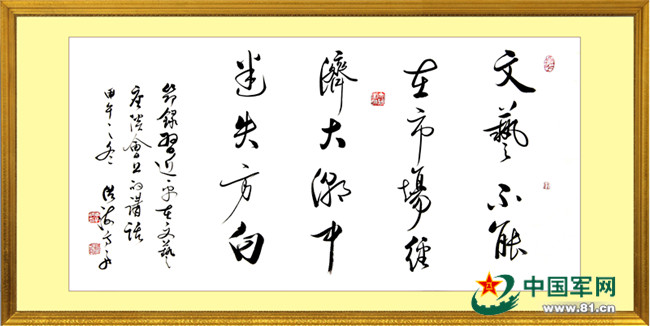 文藝不能
在市場經
濟大潮中
迷失方向
節錄習近平在文藝
座談會上的講話
甲午之冬
中国军网
www.81.cn